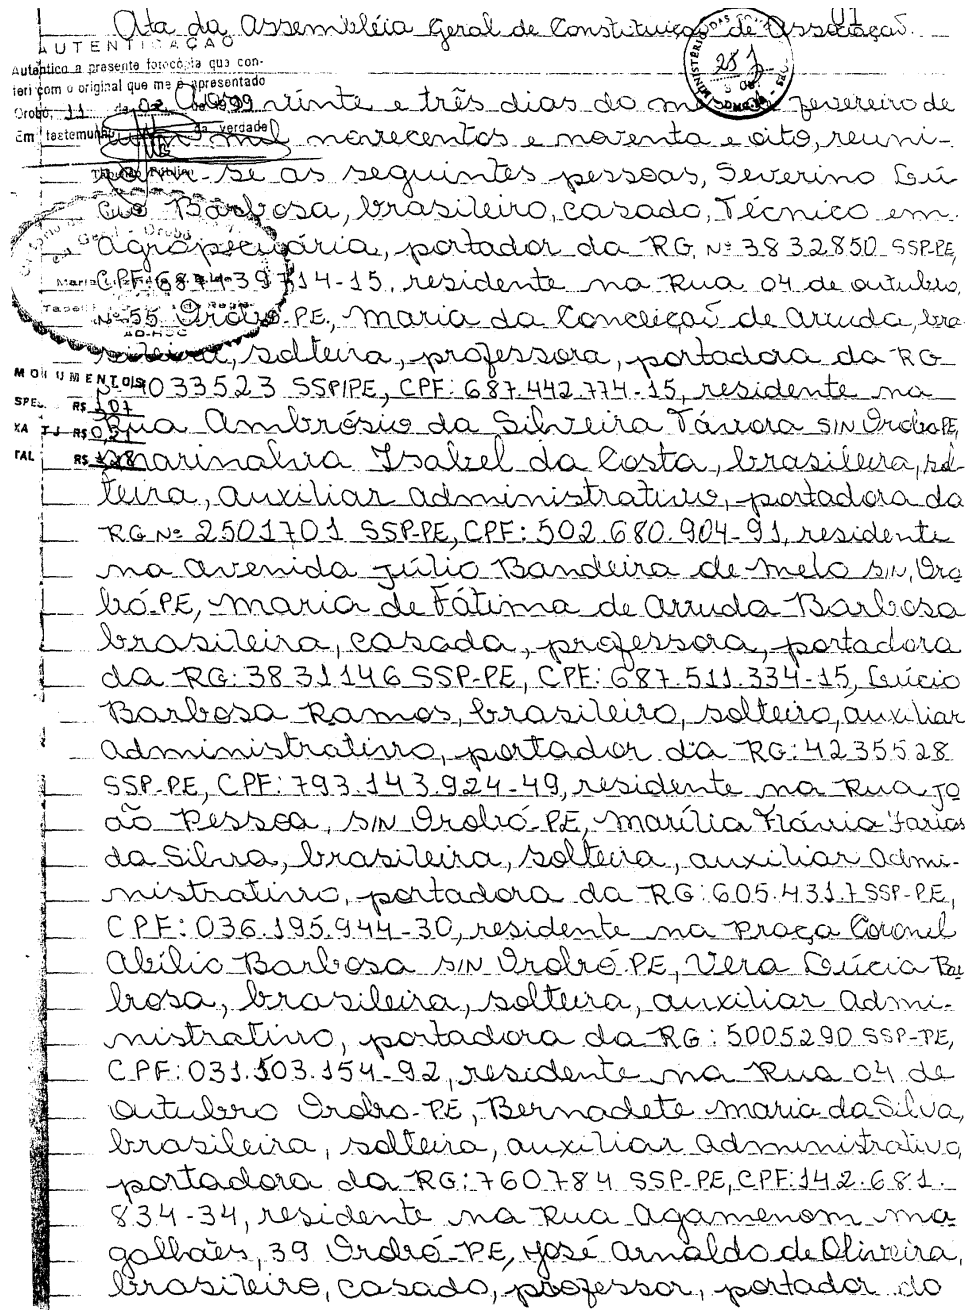 01
Ata da Assembléia Geral de Constituição de Associação.
AUTENTICAÇÃO
Autentico a presente fotocópia que con-
feri com o original que me é apresentado
Orobó, 11 de 02 de 1999
Em testemunho da verdade
Tabelião Público
MINISTÉRIO DAS COMUNICAÇÕES
251
Aos vinte e três dias do mês de fevereiro de
mil novecentos e noventa e oito, reuni-
se as seguintes pessoas, Severino Lú
cio Barbosa, brasileiro, casado, Técnico em
agropecuária, portador da RG Nº 3832850 SSP-PE,
CPF 687.439.714-15, residente na Rua 04 de outubro,
Nº 55 Orobó-PE, Maria da Conceição de Arruda, bra
sileira, solteira, professora, portadora da RG
Nº 4033523 SSP/PE, CPF: 687.442.774-15, residente na
Rua Ambrósio da Silveira Távora S/N Orobó PE,
Marinalva Isabel da Costa, brasileira, sol-
teira, auxiliar administrativo, portadora da
RG Nº 2501701 SSP-PE, CPF: 502.680.904-91, residente
na Avenida Júlio Bandeira de Melo S/N, Oro
bó-PE, Maria de Fátima de Arruda Barbosa
brasileira, casada, professora, portadora
da RG: 3831146 SSP-PE, CPF: 687.511.334-15, Lúcio
Barbosa Ramos, brasileiro, solteiro, auxiliar
administrativo, portador da RG: 4235528
SSP-PE, CPF: 793.143.924-49, residente na Rua Jo
ão Pessoa, S/N Orobó-PE, Marília Flávia Farias
da Silva, brasileira, solteira, auxiliar admi-
nistrativo, portadora da RG: 605.4317 SSP-PE,
CPF: 036.195.944-30, residente na Praça Coronel
Abílio Barbosa S/N Orobó-PE, Vera Lúcia Bar
bosa, brasileira, solteira, auxiliar admi-
nistrativo, portadora da RG: 5005290 SSP-PE,
CPF: 031.503.154-92, residente na Rua 04 de
outubro Orobó-PE, Bernadete Maria da Silva,
brasileira, solteira, auxiliar administrativo,
portadora da RG: 760784 SSP-PE, CPF: 142.681.
834-34, residente na Rua Agamenom Ma
galhães, 39 Orobó-PE, José Arnaldo de Oliveira,
brasileiro, casado, professor, portador do